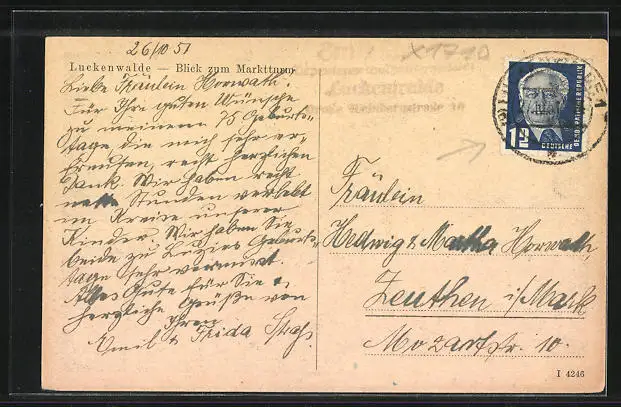 26/10 51
Luckenwalde — Blick zum Marktturm
Liebe Fräulein Horwath!
Für Ihre guten Wünsche
zu meinem 75 Geburts-
tage die mich sehr er-
freuten, recht herzlichen
Dank. Wir haben recht
nette Stunden verlebt
im Kreise unserer
Kinder Wir haben Sie
beide zu Luzies Geburts-
tage sehr vermisst.
Alles Gute für Sie &
herzliche Grüße von
Ihren
Emil & Frida
X1710
Luckenwalde
12
DEUTSCHE
DEMOKRATISCHE REPUBLIK
Fräulein
Hedwig & Martha Horwath,
Zeuthen i/Mark
Mozartstr. 10.
I 4246